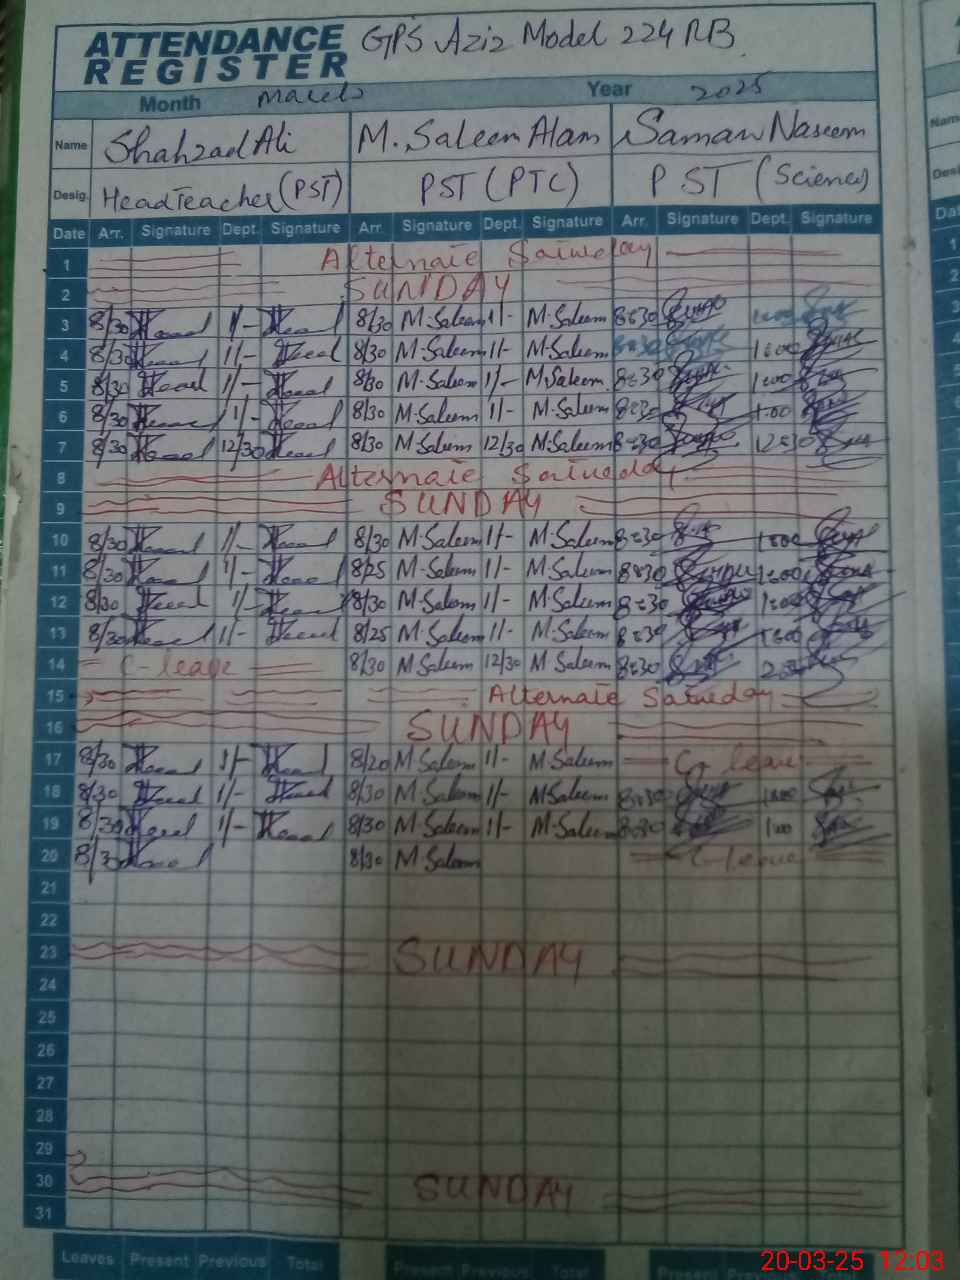 ATTENDANCE REGISTER GPS Aziz Model 224 RB
Month March Year 2025
Name Shahzad Ali M. Saleem Alam Saman Naseem
Desig. Head Teacher (PST) PST (PTC) PST (Science)
Date Arr. Signature Dept. Signature Arr. Signature Dept. Signature Arr. Signature Dept. Signature
1 Alternate Saturday
2 SUNDAY
3 8/30 1/- 8/30 M.Saleem 1/- M.Saleem 8:30
4 8/30 1/- 8/30 M.Saleem 1/- M.Saleem 8:30 1:00
5 8/30 1/- 8/30 M.Saleem 1/- M.Saleem 8:30 1:00
6 8/30 1/- 8/30 M.Saleem 1/- M.Saleem 8:30 1:00
7 8/30 12/30 8/30 M.Saleem 12/30 M.Saleem 8:30 12:30
8 Alternate Saturday
9 SUNDAY
10 8/30 1/- 8/30 M.Saleem 1/- M.Saleem 8:30 1:00
11 8/30 1/- 8/25 M.Saleem 1/- M.Saleem 8:30 1:00
12 8/30 1/- 8/30 M.Saleem 1/- M.Saleem 8:30 1:00
13 8/30 1/- 8/25 M.Saleem 1/- M.Saleem 8:30 1:00
14 C-leave 8/30 M.Saleem 12/30 M.Saleem 8:30
15 Alternate Saturday
16 SUNDAY
17 8/30 1/- 8/20 M.Saleem 1/- M.Saleem C-leave
18 8/30 1/- 8/30 M.Saleem 1/- M.Saleem 8:30 1:00
19 8/30 1/- 8/30 M.Saleem 1/- M.Saleem 8:30 1:00
20 8/30 8/30 M.Saleem C-leave
21
22
23 SUNDAY
24
25
26
27
28
29
30 SUNDAY
31
Leaves Present Previous Total Present Previous Total
20-03-25 12:03